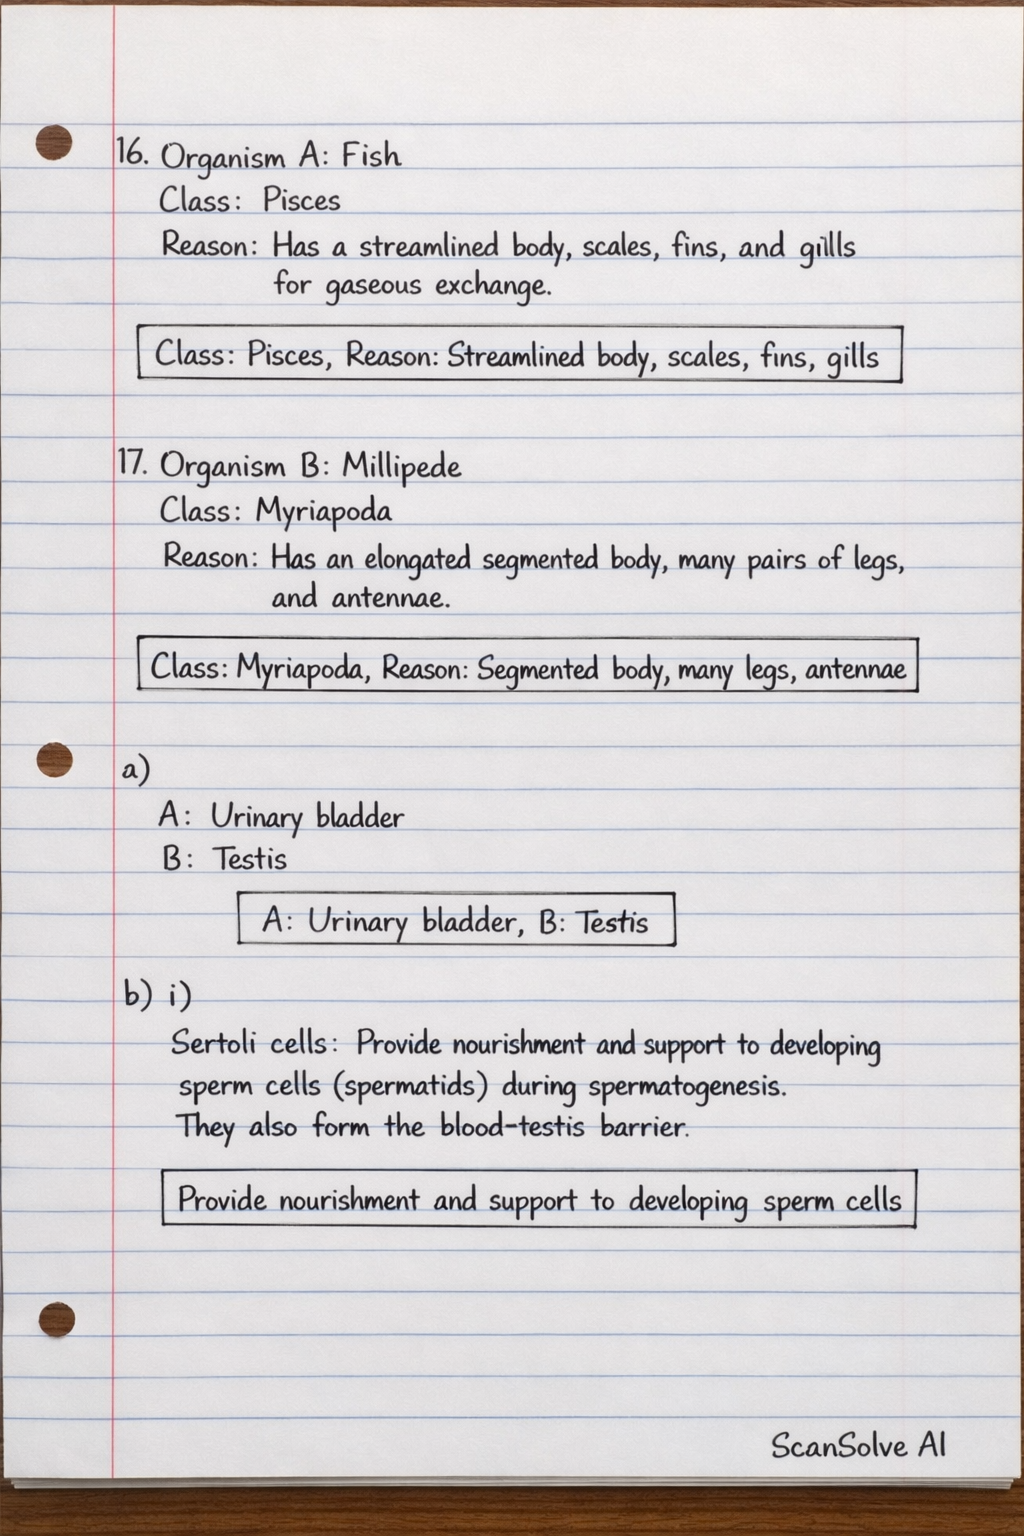 16. Organism A: Fish
Class: Pisces
Reason: Has a streamlined body, scales, fins, and gills
for gaseous exchange.
Class: Pisces, Reason: Streamlined body, scales, fins, gills
17. Organism B: Millipede
Class: Myriapoda
Reason: Has an elongated segmented body, many pairs of legs,
and antennae.
Class: Myriapoda, Reason: Segmented body, many legs, antennae
a)
A: Urinary bladder
B: Testis
A: Urinary bladder, B: Testis
b) i)
Sertoli cells: Provide nourishment and support to developing
sperm cells (spermatids) during spermatogenesis.
They also form the blood-testis barrier.
Provide nourishment and support to developing sperm cells
ScanSolve AI